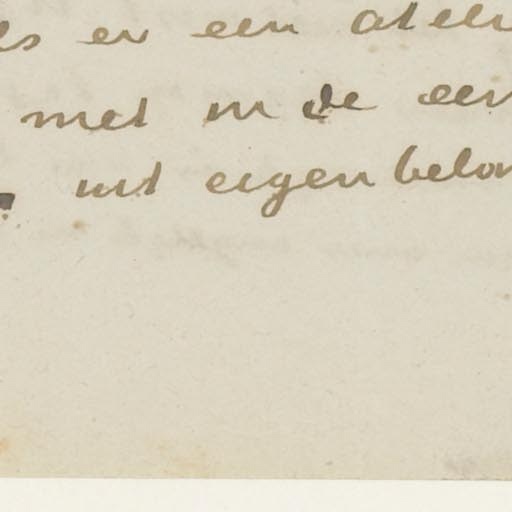 es er een atelier
niet in de eer
uit eigenbelan